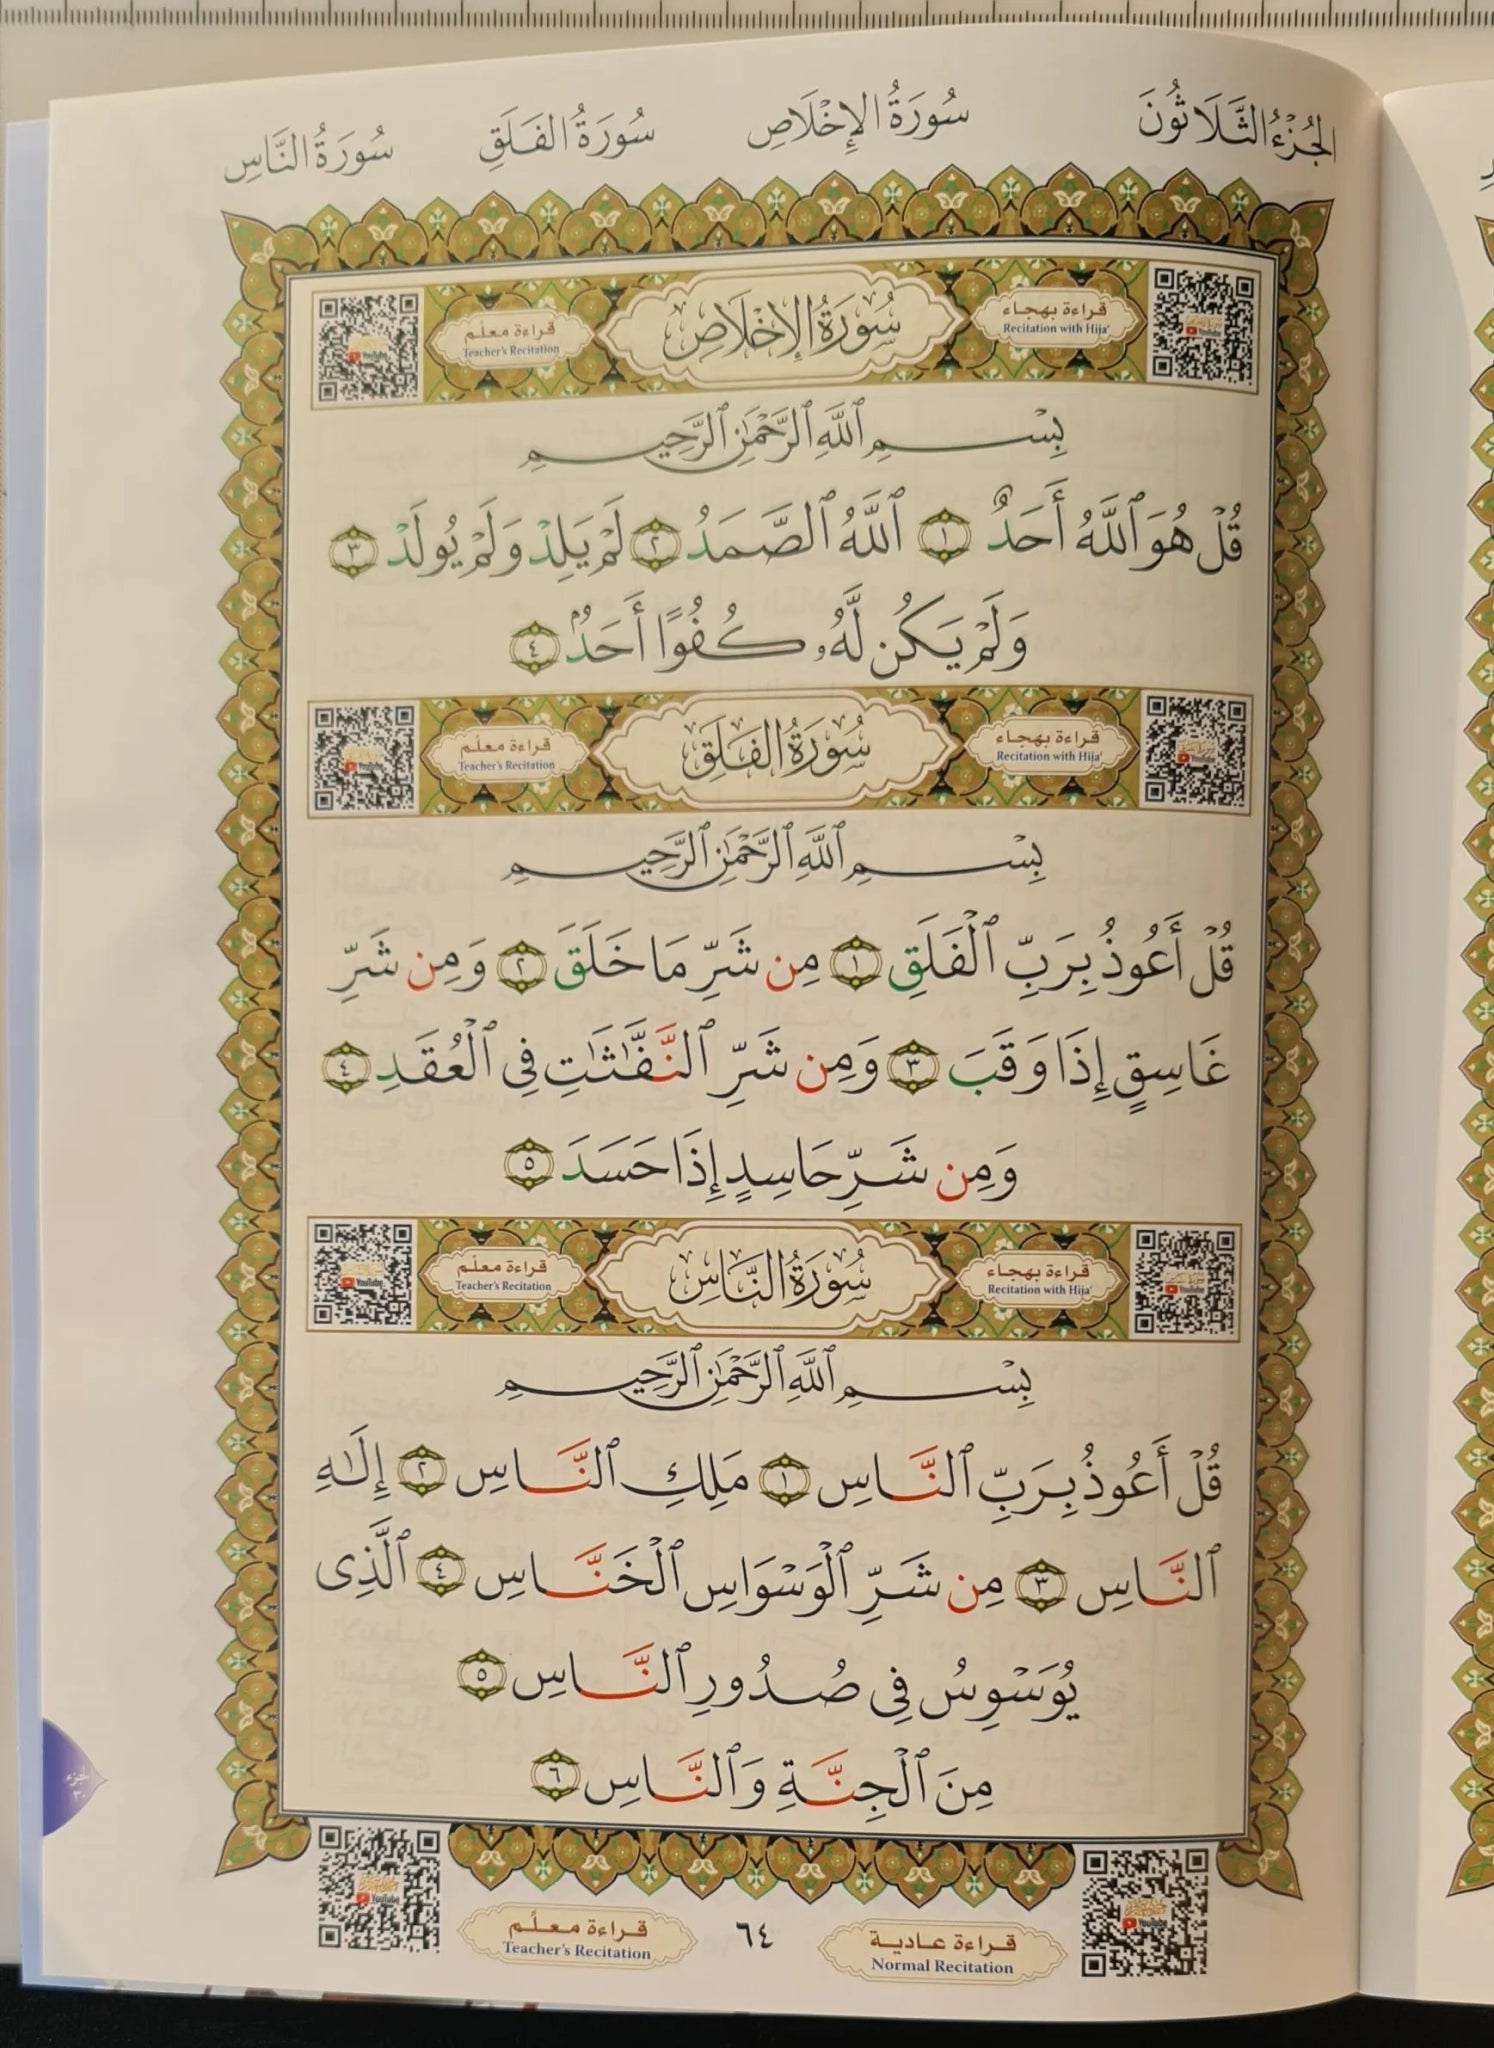 الجُزْءُ الثَّلَاثُونَ سُورَةُ الإِخْلَاصِ سُورَةُ الفَلَقِ سُورَةُ النَّاسِ
قراءة بهجاء سُورَةُ الإِخْلَاصِ قراءة معلّم
Recitation with Hija' Teacher's Recitation
بِسْمِ ٱللَّهِ ٱلرَّحْمَٰنِ ٱلرَّحِيمِ
قُلْ هُوَ ٱللَّهُ أَحَدٌ ١ ٱللَّهُ ٱلصَّمَدُ ٢ لَمْ يَلِدْ وَلَمْ يُولَدْ ٣
وَلَمْ يَكُن لَّهُۥ كُفُوًا أَحَدٌۢ ٤
قراءة بهجاء سُورَةُ الفَلَقِ قراءة معلّم
Recitation with Hija' Teacher's Recitation
بِسْمِ ٱللَّهِ ٱلرَّحْمَٰنِ ٱلرَّحِيمِ
قُلْ أَعُوذُ بِرَبِّ ٱلْفَلَقِ ١ مِن شَرِّ مَا خَلَقَ ٢ وَمِن شَرِّ
غَاسِقٍ إِذَا وَقَبَ ٣ وَمِن شَرِّ ٱلنَّفَّٰثَٰتِ فِى ٱلْعُقَدِ ٤
وَمِن شَرِّ حَاسِدٍ إِذَا حَسَدَ ٥
قراءة بهجاء سُورَةُ النَّاسِ قراءة معلّم
Recitation with Hija' Teacher's Recitation
بِسْمِ ٱللَّهِ ٱلرَّحْمَٰنِ ٱلرَّحِيمِ
قُلْ أَعُوذُ بِرَبِّ ٱلنَّاسِ ١ مَلِكِ ٱلنَّاسِ ٢ إِلَٰهِ
ٱلنَّاسِ ٣ مِن شَرِّ ٱلْوَسْوَاسِ ٱلْخَنَّاسِ ٤ ٱلَّذِى
يُوَسْوِسُ فِى صُدُورِ ٱلنَّاسِ ٥
مِنَ ٱلْجِنَّةِ وَٱلنَّاسِ ٦
الجزء
٣٠
قراءة عادية ٦٤ قراءة معلّم
Normal Recitation Teacher's Recitation
YouTube